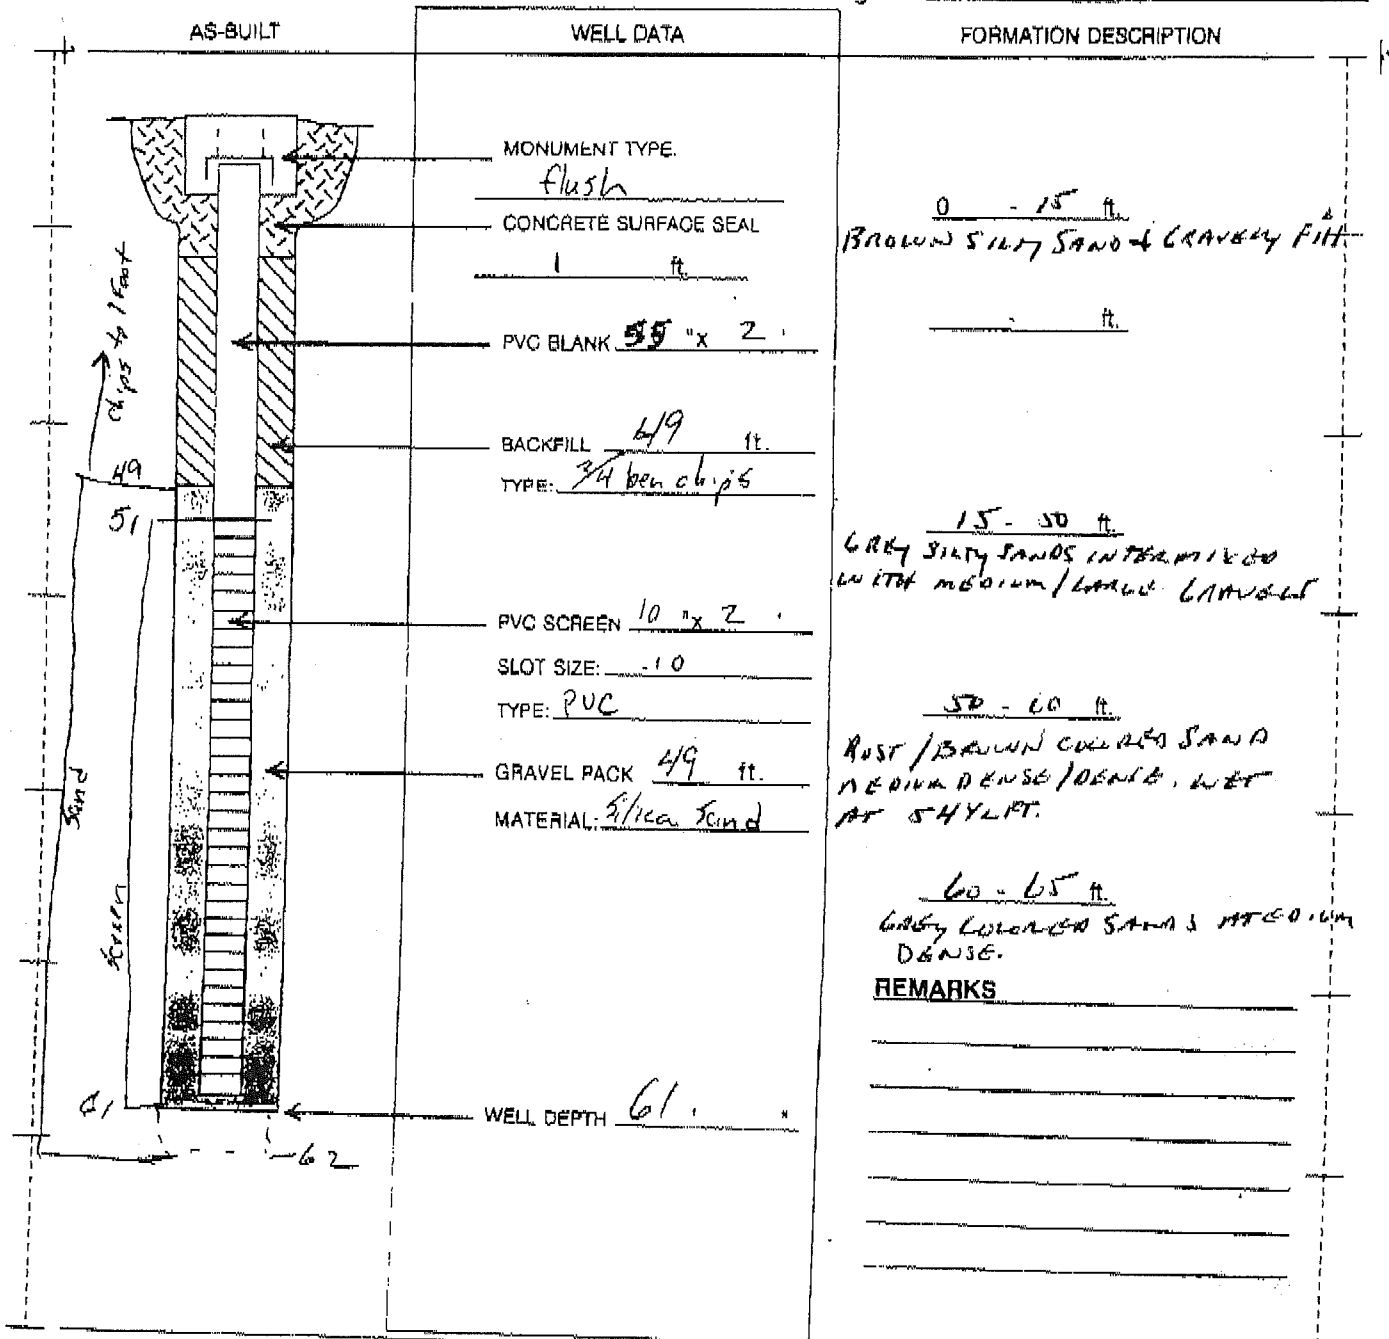 AS-BUILT
WELL DATA
FORMATION DESCRIPTION
MONUMENT TYPE.
flush
CONCRETE SURFACE SEAL
1 ft.
PVC BLANK "x 2 '
BACKFILL 49 ft.
TYPE: 3/4 ben chips
PVC SCREEN 10 "x 2 '
SLOT SIZE: .10
TYPE: PVC
GRAVEL PACK 49 ft.
MATERIAL: Silica Sand
WELL DEPTH 61 ' "
chips to 1 Foot
49
51
Sand
Screen
61
62
0 - 15 ft.
BROWN SILTY SAND & GRAVELY Fill
- ft.
15 - 50 ft.
GREY SILTY SANDS INTERMIXED
WITH MEDIUM / LARGE GRAVELS
50 - 60 ft.
RUST / BROWN COLORED SAND
MEDIUM DENSE / DENSE. WET
AT
60 - 65 ft.
GREY COLORED SANDS MEDIUM
DENSE.
REMARKS